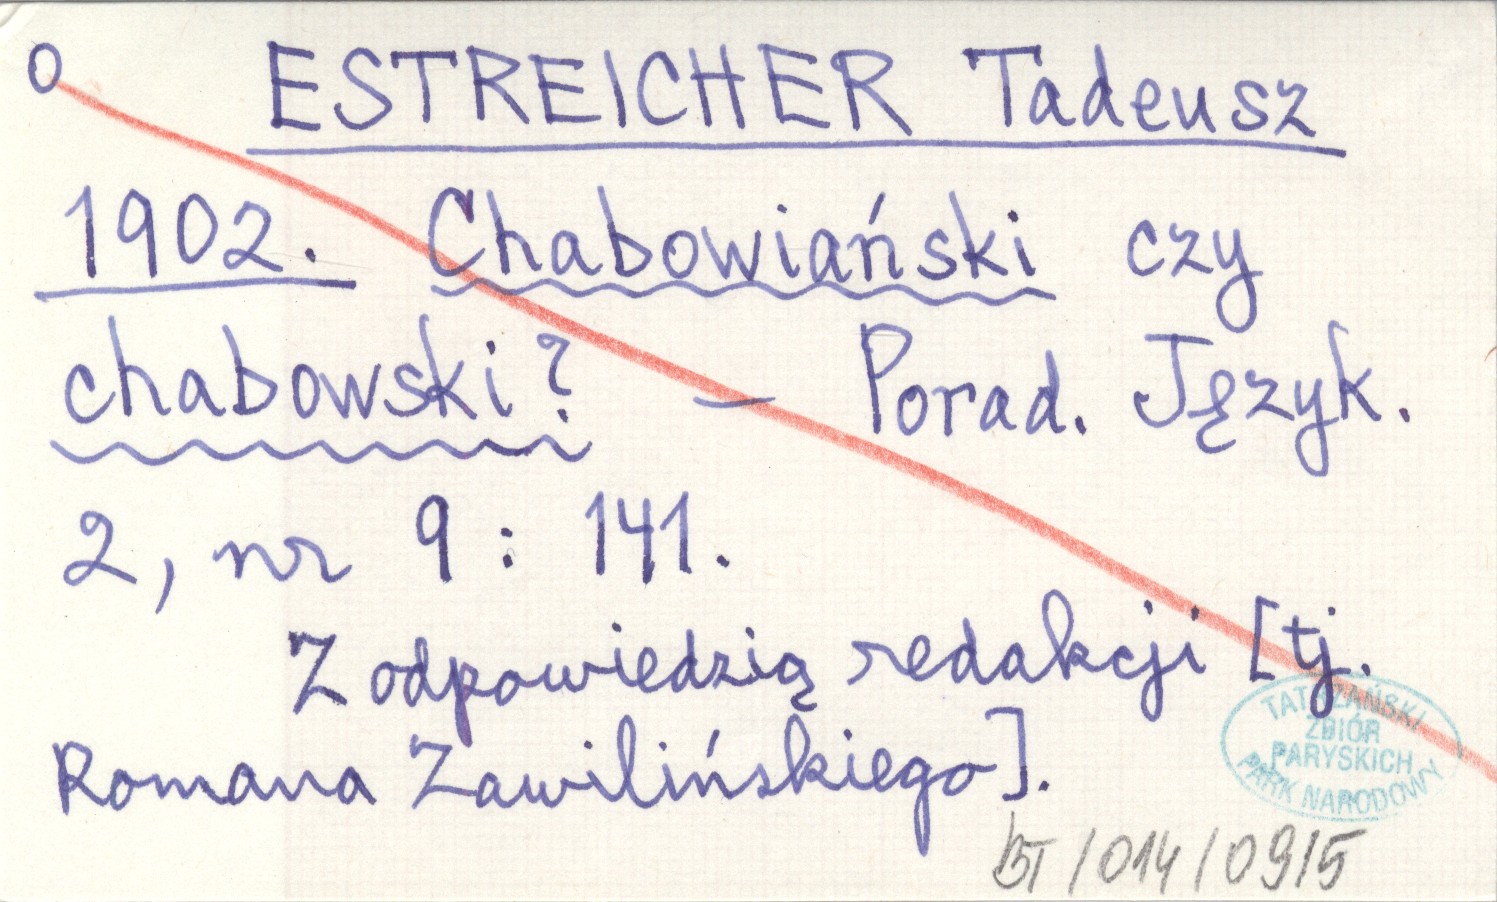 O ESTREICHER Tadeusz
1902. Chabowiański czy
chabowski? — Porad. Język.
2, nr 9 : 141.
Z odpowiedzią redakcji [tj.
Romana Zawilińskiego].
TATRZAŃSKI
ZBIÓR
PARYSKICH
PARK NARODOWY
BT/014/0915